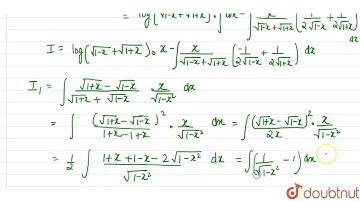 = log(√1-x+√1+x)∫dx - ∫ x/(√1-x+√1+x) (1/2√1-x + 1/2√1+x) dx
I = log(√1-x+√1+x). x - ∫ x/(√1-x+√1+x) (-1/2√1-x + 1/2√1+x) dx
I₁ = ∫ (√1+x - √1-x)/(√1+x + √1-x) · x/√1-x² dx
= ∫ (√1+x - √1-x)²/(1+x-1+x) · x/√1-x² dx = ∫ (√1+x - √1-x)²/2x · x/√1-x²
= 1/2 ∫ (1+x+1-x-2√1-x²)/√1-x² dx = ∫(1/√1-x² - 1) dx
doubtnut